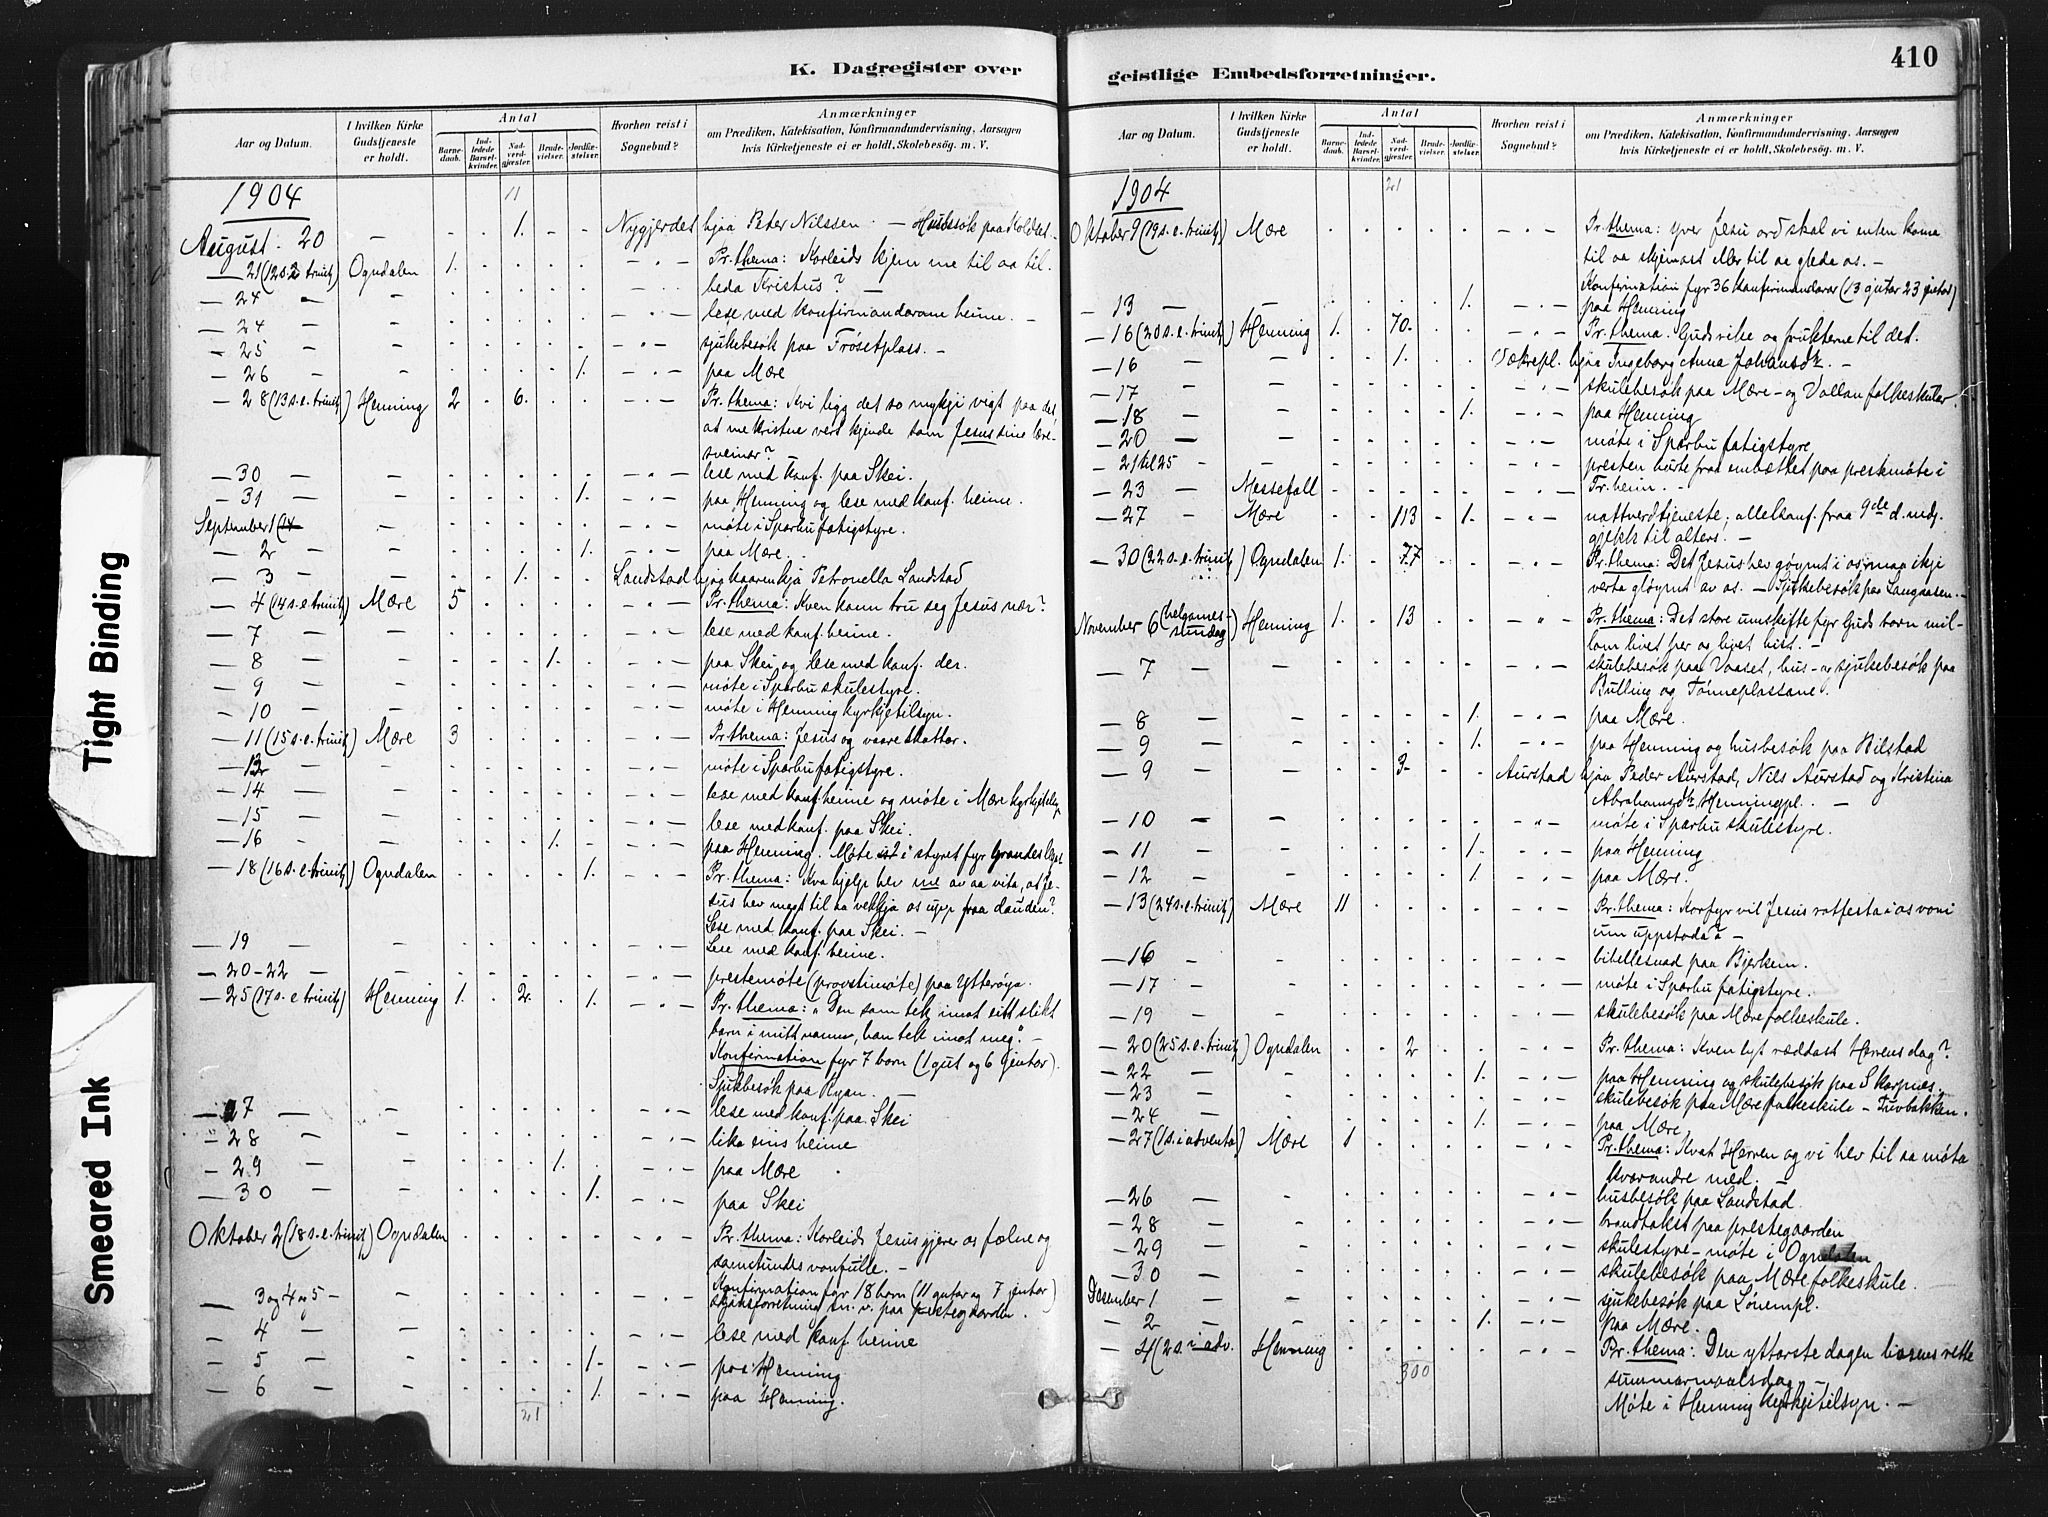 K. Dagregister over
Aar og Datum.
I hvilken Kirke Gudstjeneste er holdt.
Antal
Barnedaab.
Indledede Barselkvinder.
Nadverdgjæster.
Brudevielser.
Jordfæstelser.
Hvorhen reist i Sognebud?
Anmærkninger
om Prædiken, Katekisation, Konfirmandundervisning, Aarsagen
hvis Kirketjeneste ei er holdt, Skolebesøg. m. V.
1904 11
August 20 - 1. Nygjerdet hjaa Peter Nilssen. - Husbesök paa
21 (12 s. e. trinit) Ogndalen 1. Pr. thema: Korleids kjem me til aa til-
beda Kristus? -
- 24 - - lese med konfirmandarane heime. -
- 24 - - sjukebesök paa Frösetplass. -
- 25 - -
- 26 - - 1. paa Mære
- 28 (13 s. e. trinit) Henning 2 6. Pr. thema: Kvi ligg det so mykji vigt paa det
at me kristne vert kjende som Jesus sine lære-
sveinar? -
- 30 - - lese med konf. paa Skei.
- 31 - - 1. paa Henning og lese med konf. heime.
September 1 - möte i Sparbu fatigstyre.
- 2 - - 1. paa Mære.
- 3 - - 1. Landstad hjaa Petronella Landstad
- 4 (14 s. e. trinit) Mære 5 Pr. thema: Kven kann tru seg Jesus nær?
- 7 - - lese med konf. heime.
- 8 - - 1. paa Skei og lese med konf. der.
- 9 - - möte i Sparbu skulestyre.
- 10 - - möte i Henning kyrkjetilsyn.
- 11 (15 s. e. trinit) Mære 3 Pr. thema: Jesus og vaare skattar.
- 13 - möte i Sparbu fatigstyre.
- 14 - - lese med konf. heime og möte i Mære kyrkjetilsyn
- 15 - - lese med konf. paa Skei.
- 16 - - 1. paa Henning. Möte i styret fyr Grandes legat
- 18 (16 s. e. trinit) Ogndalen 1. Pr. thema: Kva hjelp hev me av aa vita, at Je-
sus hev magt til aa vekkja os upp fraa dauden?
Lese med konf. paa Skei. -
- 19 - - Lese med konf. heime.
- 20-22 - - prestemöte (provstimöte) paa Ytteröya.
- 25 (17 s. e. trinit) Henning 1. 2. 1. Pr. thema: „Den som tek imot eitt slikt
barn i mitt namn, han tek imot meg". -
Konfirmation fyr 7 born (1 gut og 6 gjentor).
Sjukbesök paa Ryan. -
- 27 - - lese med konf. paa Skei
- 28 - - lika eins heime
- 29 - - 1. paa Mære
- 30 - - 1. paa Skei
Oktober 2 (18 s. e. trinit) Ogndalen Pr. thema: Korleids Jesus gjerer os fælne og
samstundes vonfulle. -
Konfirmation fyr 18 born (11 gutar og 7 gjentor)
- 3 og 4 og 5 - - skjönsforretning m. v. paa prestegaarden.
- 4 - - lese med konf. heime
- 5 - - 1. paa Henning
- 6 - - 1. paa Henning.
21
geistlige Embedsforretninger. 410
Aar og Datum.
I hvilken Kirke Gudstjeneste er holdt.
Antal
Barnedaab.
Indledede Barselkvinder.
Nadverdgjæster.
Brudevielser.
Jordfæstelser.
Hvorhen reist i Sognebud?
Anmærkninger
om Prædiken, Katekisation, Konfirmandundervisning, Aarsagen
hvis Kirketjeneste ei er holdt, Skolebesøg. m. V.
1904 21
Oktober 9 (19 s. e. trinit) Mære Pr. thema: Yver Jesu ord skal vi enten koma
til aa skjemast eller til aa gleda os. -
Konfirmation fyr 36 konfirmandarar (13 gutar 23 gjentor)
- 13 - - 1. paa Henning
- 16 (20 s. e. trinit) Henning 1. 70. Pr. thema: Guds rike og frukterne til det.
- 16 - - 1. hjaa Ingeborg Anna Johansdtr. -
- 17 - - skulebesök paa Mære- og Vollan folkeskular.
- 18 - - 1. paa Henning
- 20 - - möte i Sparbu fatigstyre
- 21 til 25 - - presten burte fraa embættet paa prestmöte i
- 23 - Messefall Tr.heim. -
- 27 - Mære 113 1. nattverdtjeneste; konf. fraa 9de d. mdr.
gjekk til alters. -
- 30 (22 s. e. trinit) Ogndalen 1. 77 Pr. thema: Det Jesus hev göymt i os maa ikje
verta glöymt av os. - Sjukebesök paa Langaasen. -
November 6 (helgames-sundag) Henning 1. 13 Pr. thema: Det store umskifte fyr Guds born mil-
lom livet her og livet hist. -
- 7 - - skulebesök paa Vaaset, hus- og sjukebesök paa
Bulling og Tönneplassane.
- 8 - - 1. paa Mære.
- 9 - - 1. paa Henning og husbesök paa Bilstad
- 9 - - 3 Aurstad hjaa Peder Aurstad, Nils Aurstad og Kristina
Abrahamsdtr, Henningpl. -
- 10 - - möte i Sparbu skulestyre.
- 11 - - 1. paa Henning
- 12 - - 1 paa Mære.
- 13 (24 s. e. trinit) Mære 11 Pr. thema: Korfyr vil Jesus rotfesta i os voni
um uppstoda? -
- 16 - - bibellesnad paa Bjerkem.
- 17 - - möte i Sparbu fatigstyre.
- 19 - - skulebesök paa Mære folkeskule.
- 20 (25 s. e. trinit) Ogndalen 2 Pr. thema: Kven lyt ræddast Herrens dag?
- 22 - - 1. paa Henning og skulebesök paa Skarpnes.
- 23 - - skulebesök paa Mære folkeskule - Tuvbakken.
- 24 - - 1. paa Mære
- 27 (1 s. i advent) Mære 1 Pr. thema: Kvat Herren og vi hev til aa möta
kvarandre med. -
- 26 - - husbesök paa Landstad
- 28 - - brandtakst paa prestegaarden
- 29 - - skulestyre-möte i Ogndalen
- 30 - - skulebesök paa Mære folkeskule.
Desember 1 - - sjukebesök paa Lönempl.
- 2 - - 1. paa Mære.
- 4 (2 s. i adv. Henning Pr. thema: Den ytterste dagen rette
summarmaalsdag -
300
Möte i Henning kyrkjetilsyn. -
Tight Binding
Smeared Ink